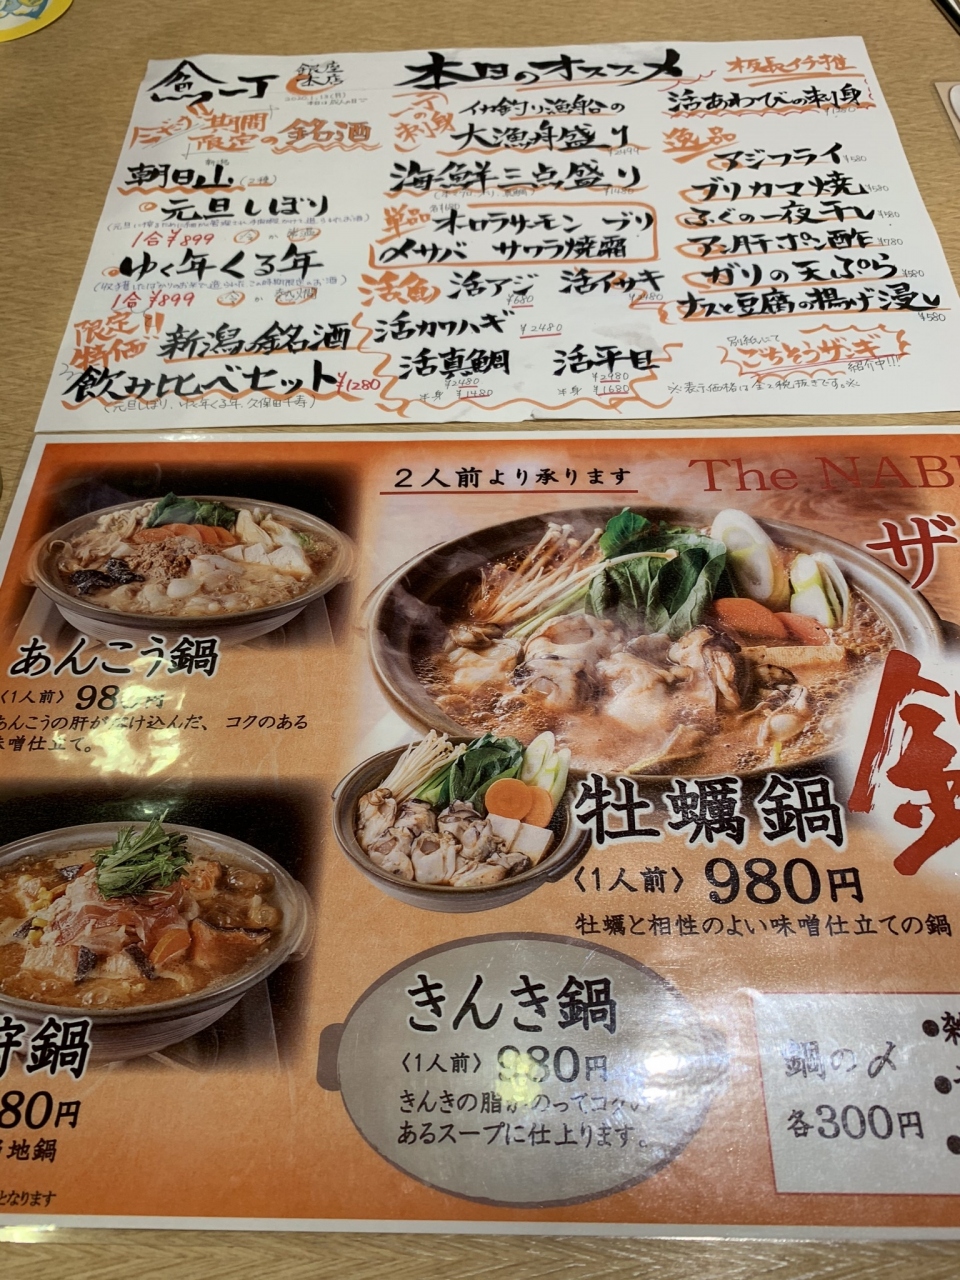 魚一丁
銀座
本店
本日のオススメ
板長イチ推
活あわびの刺身
¥1,980
期間
限定の銘酒
朝日山(2種)
元旦しぼり
1合¥899
ゆく年くる年
1合¥899
限定!!
特価
新潟銘酒
飲み比べセット¥1280
(元旦しぼり、ゆく年くる年、久保田千寿)
一丁
の刺身
イカ釣り漁船の
大漁舟盛り
海鮮三点盛り
¥1480
単品
オーロラサーモン ブリ
〆サバ サワラ焼霜
活魚
活アジ
¥680
活イサキ
¥2480
活カワハギ
¥2480
活真鯛
¥2480
半身 ¥1480
活平目
¥2980
半身 ¥1680
逸品
アジフライ¥580
ブリカマ焼
ふぐの一夜干し
アン肝ポン酢¥780
ガリの天ぷら¥580
ナスと豆腐の揚げ浸し
¥580
別紙にて
ごちそうザンギ
紹介中!!!
※表示価格は全て税抜きです。※
2人前より承ります
The NAB
ザ
鍋
あんこう鍋
〈1人前〉980円
あんこうの肝が溶け込んだ、コクのある
味噌仕立て。
牡蠣鍋
〈1人前〉980円
牡蠣と相性のよい味噌仕立ての鍋
狩鍋
80円
地鍋
となります
きんき鍋
〈1人前〉980円
きんきの脂がのってコクの
あるスープに仕上ります。
鍋の〆
各300円
●雑